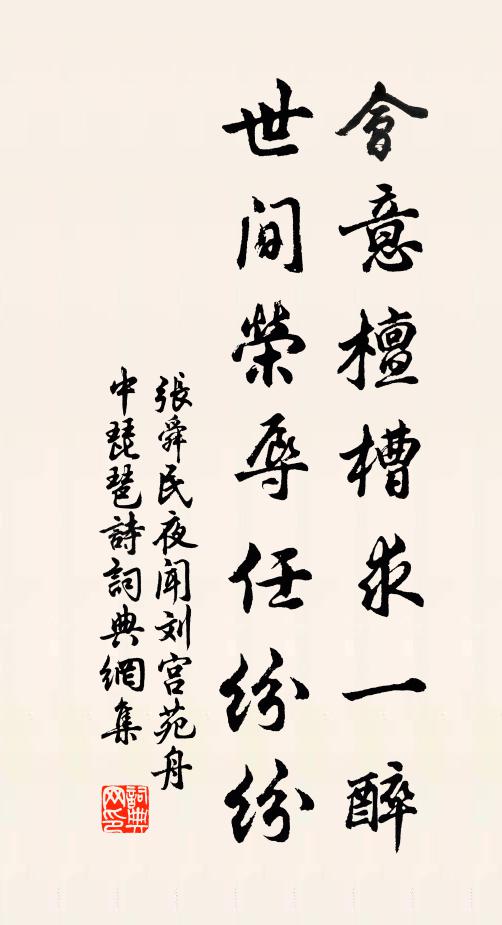 會意檀槽求一醉
世间榮辱任紛紛
張舜民夜聞刘宫苑舟
中琵琶詩詞典網集
詞典
网印